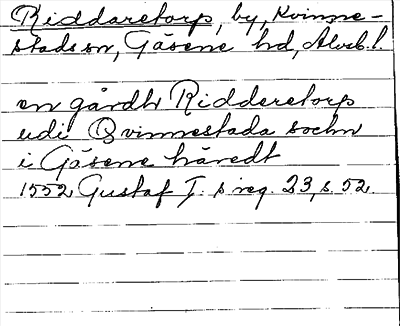 Riddaretorp, by, Kvinne-
stads sn, Gäsene hd, Älvsb. l.
en gårdh Ridderetorp
udi Qvinnestada sochn
i Gäsene häredt
1552 Gustaf I:s reg. 23, s. 52